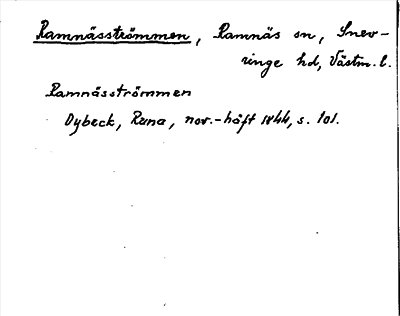 Ramnäsströmmen, Ramnäs sn, Snev-
ringe hd, Västm. l.
Ramnäsströmmen
Dybeck, Runa, nov.-häft 1844, s. 101.